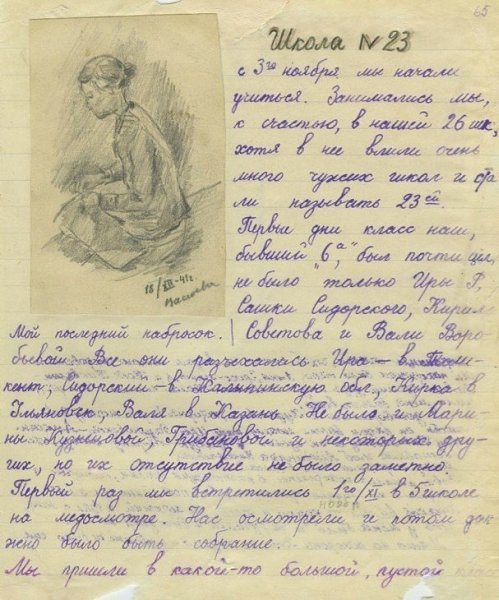 65
Школа №23
с 3го ноября мы начали
учиться. Занимались мы,
к счастью, в нашей 26 шк,
хотя в нее влили очень
много чужих школ и ста
ли называть 23ей.
Первые дни класс наш,
бывший "6а", был почти цел,
не было только Иры Г,
Сашки Сидорского, Кирил
18/XII-41г.
Мой последний набросок. Советова и Вали Воро
бьевой. Все они разъехались Ира – в
кент, Сидорский – в обл, Кирка в
Ульяновск Валя в Казань. Не было и Мари
ны Кузнецовой, Грибановой и некоторых дру
гих, но их отсутствие не было заметно.
Первый раз мы встретились 1го/XI в школе
на медосмотре. Нас осмотрели и потом дол
жно было быть собрание.
Мы пришли в какой-то большой, пустой